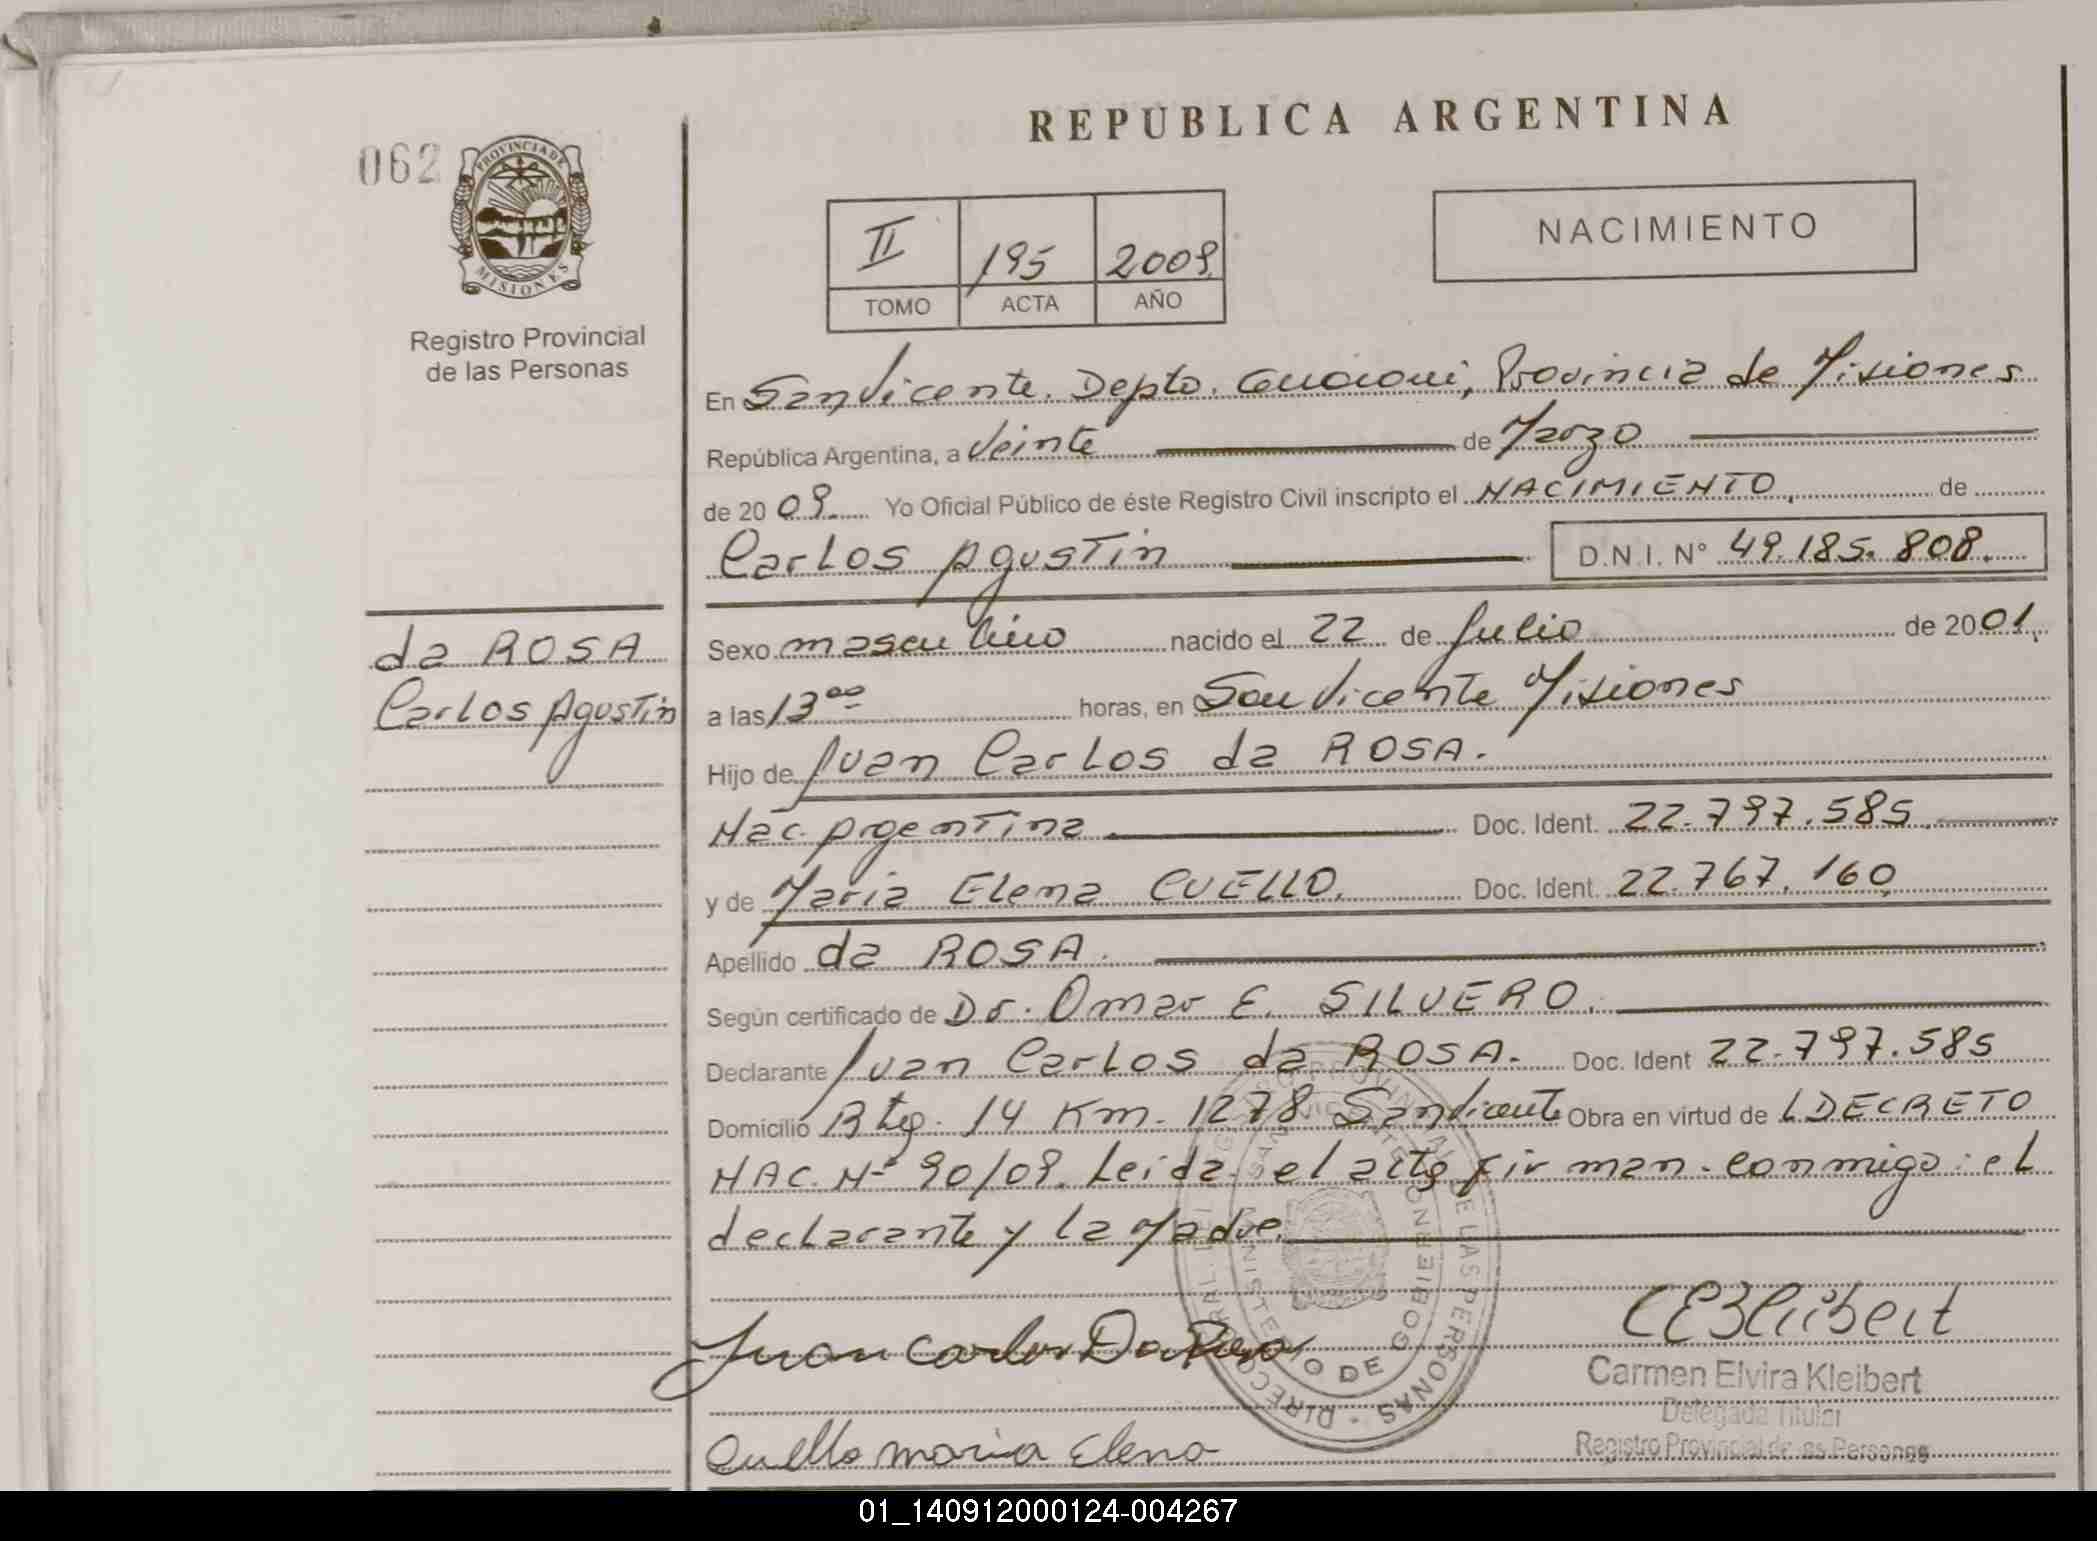 REPUBLICA ARGENTINA
062
PROVINCIA DE
MISIONES
Registro Provincial
de las Personas
II 195 2009
TOMO ACTA AÑO
NACIMIENTO
En San Vicente. Depto. Guaraní, Provincia de Misiones
República Argentina, a Veinte de Marzo
de 2009. Yo Oficial Público de éste Registro Civil inscripto el NACIMIENTO, de
Carlos Agustín D.N.I. N° 49.185.808.
da ROSA
Carlos Agustín
Sexo masculino nacido el 22 de Julio de 2001,
a las 13⁰⁰ horas, en San Vicente Misiones
Hijo de Juan Carlos da ROSA.
Nac. Argentina Doc. Ident. 22.797.585
y de Maria Elena CUELLO. Doc. Ident. 22.767.160,
Apellido da ROSA.
Según certificado de Dr. Omar E. SILVERO.
Declarante Juan Carlos da ROSA. Doc. Ident 22.797.585
Domicilio Rta. 14 Km. 1278 San Vicente Obra en virtud de DECRETO
NAC. Nº 90/09. Leida el acta firman conmigo: el
declarante y la Madre.
Juan Carlos Da Rosa
Cuello maria Elena
CEKleibert
Carmen Elvira Kleibert
Delegada Titular
Registro Provincial de las Personas
MINISTERIO DE GOBIERNO
01_140912000124-004267